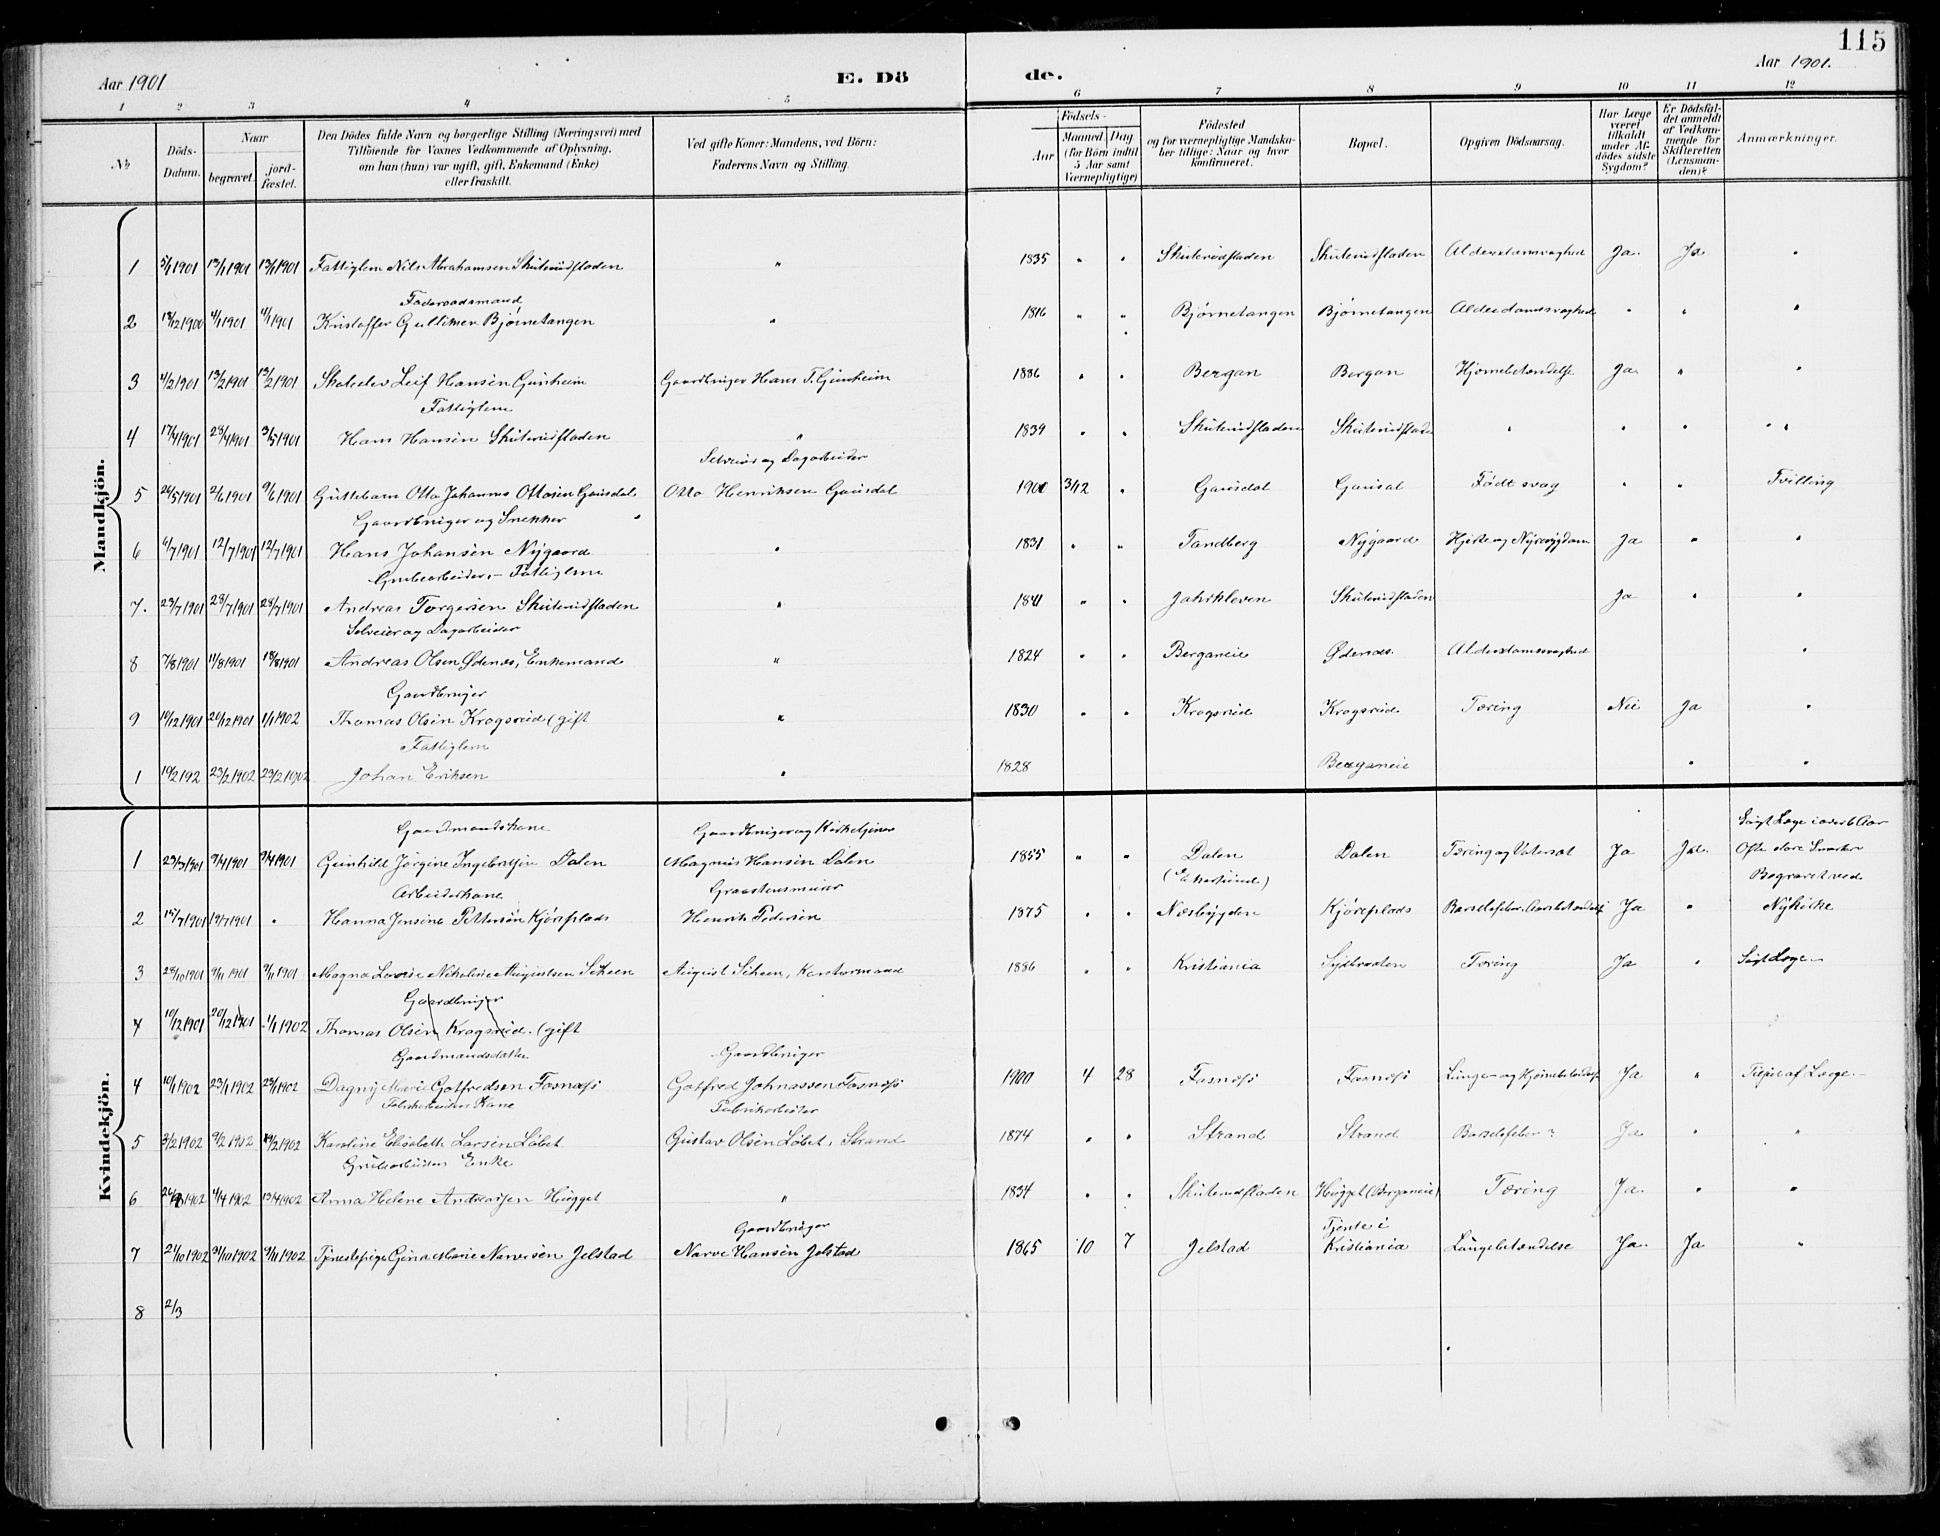 115
Aar 1901 E. Dö de. Aar 1901.
1 2 3 4 5 6 7 8 9 10 11 12
No
Döds-Datum.
Naar
begravet.
jord-fæstet.
Den Dödes fulde Navn og borgerlige Stilling (Næringsvei) med
Tilföiende for Voxnes Vedkommende af Oplysning,
om han (hun) var ugift, gift, Enkemand (Enke)
eller fraskilt.
Ved gifte Koner: Mandens, ved Börn:
Faderens Navn og Stilling.
Födsels-
Aar
Maaned Dag
(for Börn indtil
5 Aar samt
Værnepligtige)
Födested
og for værnepligtige Mandska-
ber tillige: Naar og hvor
konfirmeret.
Bopæl.
Opgiven Dödsaarsag.
Har Læge
været
tilkaldt
under Af-
dödes sidste
Sygdom?
Er Dödsfal-
det anmeldt
af Vedkom-
mende for
Skifteretten
(Lensman-
den)?
Anmærkninger.
Mandkjön.
1 5/1 1901 13/1 1901 13/1 1901 Fattiglem Nils Abrahamsen Skuterudfladen " 1835 " " Skuterudfladen Skuterudfladen Alderdomsvaghed Ja. Ja "
Föderaadsmand
2 18/12 1900 4/1 1901 4/1 1901 Kristoffer Gulliksen Bjørnetangen " 1816 " " Bjørnetangen Bjørnetangen Alderdomsvaghed " " "
3 4/2 1901 13/2 1901 13/2 1901 Skoleelev Leif Hansen Gunheim Gaardbruger Hans T. Gunheim 1886 " " Bergan Bergan Hjernebetændelse Ja " "
Fattiglem
4 17/4 1901 28/4 1901 3/5 1901 Hans Hansen Skuterudfladen " 1839 " " Skuterudfladen Skuterudfladen " " " " "
Selveier og Dagarbeider
5 26/5 1901 2/6 1901 9/6 1901 Guttebarn Otto Johannes Ottosen Gausdal Otto Henriksen Gausdal 1901 3/42 " Gausdal Gausal Født svag " " Tvilling
Gaardbruger og Snekker
6 6/7 1901 12/7 1901 12/7 1901 Hans Johansen Nygaard " 1831 " " Tandberg Nygaard Hjerte og Nyresygdom Ja " "
Grubearbeider - Fattiglem
7. 23/7 1901 28/7 1901 28/7 1901 Andreas Torgersen Skuterudfladen " 1841 " " Jahrkleven Skuterudfladen Ja " "
Selveier og Dagarbeider
8 7/8 1901 11/8 1901 18/8 1901 Andreas Olsen Ødenæs, Enkemand " 1824 " " Berganeie Ødenæs. Alderdomsvaghed "
Gaardbruger
9 10/12 1901 20/12 1901 1/1 1902 Thomas Olsen Krogsrud (gift " 1830 " " Krogsrud Krogsrud Tæring Nei Ja "
Fattiglem
1 10/2 192 23/2 1902 23/2 1902 Johan Eriksen " 1828 Berganeie " "
Kvindekjön.
Gaardmandskone Gaardbruger og Kirketjener Søgt Læge i over 6 Aar
1 23/3 1901 9/4 1901 9/4 1901 Gunhild Jørgine Ingebretsen Dalen Magnus Hansen Dalen 1855 " " Dalen Dalen Tæring og Vatersot Ja Ja.
(Ekersund)
Begravet ved
Arbeiderkone Graastensmurer
2 15/7 1901 19/7 1901 " Hanna Jensine Pettersen Kjørsplads Henrik Pedersen 1875 " " Næsbygden Kjørsplads Ja " Nykirke
3 28/10 1901 9/11 1901 9/11 1901 Magna Lovise Nikoline Augustsen Scheen August Scheen, Kontormand 1886 " " Kristiania Tæring Ja " Søgt Læge -
Gaardbruger
4 10/12 1901 20/12 1901 1/1 1902 Thomas Olsen Krogsrud. (gift
Gaardmandsdatter Gaardbruger
4 10/1 1902 23/1 1902 23/1 1902 Dagny Marie Gotfredsen Fosnæss Gotfred Johnassen Fosnæss 1900 4 28 Fosnæss Fosnæss Lunge- og Hjernebetændelse Ja " Pleiet af Læge. -
Fabrikarbeiders Kone Fabrikarbeider
5 3/2 1902 9/2 1902 19/2 1902 Karoline Elisabeth Larsen Løbet Gustav Olsen Løbet, Strand 1874 " " Strand Strand Barselsfeber? Ja " "
Grubearbeiders Enke
6 26/3 1902 4/4 1902 13/4 1902 Anna Helene Andreassen Hugget " 1834 " " Skuterudfladen Hugget (Berganeie) Tæring Ja. " "
Gaardbruger Tjente i
7 21/10 1902 31/10 1902 9/11 1902 Tjenestepige Gina Marie Narvesen Jelstad Narve Hansen Jelstad 1865 10 7 Jelstad Kristiania Lungebetændelse Ja. Ja "
8 2/3